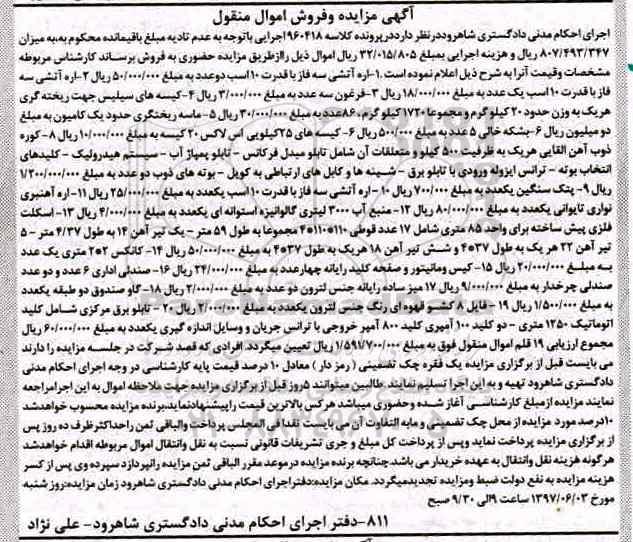 آگهی مزایده وفروش اموال منقول
اجرای احکام مدنی دادگستری شاهروددرنظر دارددرپرونده کلاسه ۹۶۰۴۱۸اجرایی باتوجه به عدم تادیه مبلغ باقیمانده محکوم به،به میزان
۸۰۷/۴۹۳/۳۴۷ ریال و هزینه اجرایی بمبلغ ۳۲/۰۱۵/۸۰۵ ریال اموال ذیل راازطریق مزایده حضوری به فروش برساند کارشناس مربوطه
مشخصات وقیمت آنرا به شرح ذیل اعلام نموده است .۱-اره آتشی سه فاز با قدرت ۱۰ اسب دوعدد به مبلغ ۵۰/۰۰۰/۰۰۰ ریال ۲-اره آتشی سه
فاز با قدرت ۱۰ اسب یک عدد به مبلغ ۱۸/۰۰۰/۰۰۰ ریال ۳-فرغون سه عدد به مبلغ ۳/۰۰۰/۰۰۰ ریال ۴-کیسه های سیلیس جهت ریخته گری
هریک به وزن حدود ۲۰ کیلو گرم و مجموعا ۱۷۲۰ کیلو گرم ، ۸۶عدد به مبلغ ۳۰/۰۰۰/۰۰۰ ریال ۵-ماسه ریختگری حدود یک کامیون به مبلغ
دو میلیون ریال ۶-بشکه خالی ۵ عدد به مبلغ ۵۰۰/۰۰۰ ریال ۶- کیسه های ۲۵کیلویی اس لاکس ۲۰ کیسه به مبلغ ۱۰/۰۰۰/۰۰۰ ریال ۸- کوره
ذوب آهن القایی هریک به ظرفیت ۵۰۰ کیلو و متعلقات آن شامل تابلو مبدل فرکانس - تابلو پمپاژ آب - سیستم هیدرولیک - کلیدهای
انتخاب بوته - ترانس ایزوله ورودی با تابلو برق - شینه ها و کابل های ارتباطی به کویل - بوته های ذوب دو عدد به مبلغ ۱/۲۰۰/۰۰۰/۰۰۰
ریال ۹- پتک سنگین یکعدد به مبلغ ۷۰۰/۰۰۰ ریال ۱۰- اره آتشی سه فاز با قدرت ۱۰ اسب یکعدد به مبلغ ۲۵/۰۰۰/۰۰۰ ریال ۱۱-اره آهنبری
نواری تایوانی یکعدد به مبلغ ۸۰/۰۰۰/۰۰۰ ریال ۱۲- منبع آب ۳۰۰۰ لیتری گالوانیزه استوانه ای یکعدد به مبلغ ۴/۰۰۰/۰۰۰ ریال ۱۳- اسکلت
فلزی پیش ساخته برای واحد ۸۵ متری شامل ۱۷ عدد قوطی ۱۱۰*۱۱۰*۴ مجموعا به طول ۵۹ متر - یک تیر آهن ۱۴ به طول ۴/۳۷ متر - ۵
تیر آهن ۲۲ هر یک به طول ۴*۳۷ و شش تیر آهن ۱۸ هریک به طول ۴*۳۷ به مبلغ ۵۰/۰۰۰/۰۰۰ ریال ۱۴- کانکس ۲*۲ متری یک عدد
به مبلغ ۲۰/۰۰۰/۰۰۰ ریال ۱۵-کیس ومانیتور و صفحه کلید رایانه چهارعدد به مبلغ ۲۴/۰۰۰/۰۰۰ ریال ۱۶- صندلی اداری ۶ عدد و دو عدد
صندلی چرخدار به مبلغ ۹/۰۰۰/۰۰۰ ریال ۱۷ میز ساده رایانه جنس لترون دو عدد به مبلغ ۲/۰۰۰/۰۰۰ ریال ۱۸- گاو صندوق دو طبقه یکعدد
به مبلغ ۱/۵۰۰/۰۰۰ ریال ۱۹ - فایل ۸ کشو قهوه ای رنگ جنس لترون یکعدد به مبلغ ۲/۰۰۰/۰۰۰ ریال ۲۰ - تابلو برق مرکزی شامل کلید
اتوماتیک ۱۲۵۰ متری - دو کلید ۱۰۰ آمپری کلید ۸۰۰ آمپر خروجی با ترانس جریان و وسایل اندازه گیری یکعدد به مبلغ ۶۰/۰۰۰/۰۰۰ ریال
مجموع ارزیابی ۱۹ قلم اموال منقول فوق به مبلغ ۱/۵۹۱/۷۰۰/۰۰۰ ریال تعیین میگردد.افرادی که قصد شرکت در جلسه مزایده را دارند
می بایست قبل از برگزاری مزایده یک فقره چک تضمینی ( رمز دار ) معادل ۱۰ درصد قیمت پایه کارشناسی در وجه اجرای احکام مدنی
دادگستری شاهرود تهیه و به این اجرا تسلیم نمایند .طالبین میتوانند ۵روز قبل از برگزاری مزایده جهت ملاحظه اموال به این اجرامراجعه
نمایند مزایده ازمبلغ کارشناسی آغاز شده وحضوری میباشد هرکس بالاترین قیمت راپیشنهادنماید،برنده مزایده محسوب خواهدشد
۱۰درصد مورد مزایده از محل چک تضمینی و مابه التفاوت آن می بایست نقدا فی المجلس پرداخت والباقی ثمن راحداکثرظرف ده روز پس
از برگزاری مزایده پرداخت نماید وپس از پرداخت کل مبلغ و جری تشریفات قانونی نسبت به نقل وانتقال اموال مربوطه اقدام خواهدشد
هرگونه هزینه نقل وانتقال به عهده خریدار می باشد.چنانچه برنده مزایده درموعد مقرر الباقی ثمن مزایده رانپردازد سپرده وی پس از کسر
هزینه مزایده به نفع دولت ضبط ومزایده تجدیدمیگردد. مکان مزایده:دفتراجرای احکام مدنی دادگستری شاهرود زمان مزایده:روز شنبه
مورخ ۱۳۹۷/۰۶/۰۳ ساعت ۹الی ۹/۳۰ صبح
۸۱۱-دفتر اجرای احکام مدنی دادگستری شاهرود- علی نژاد